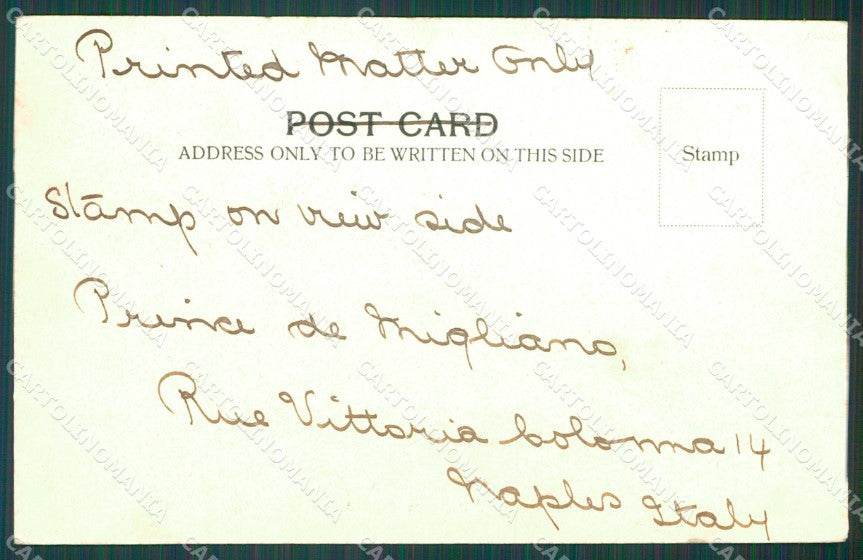 Printed Matter Only
POST CARD
ADDRESS ONLY TO BE WRITTEN ON THIS SIDE
Stamp
Stamp on view side
Prince de Migliano,
Rue Vittoria Colonna 14
Naples Italy
CARTOLINOMANIA